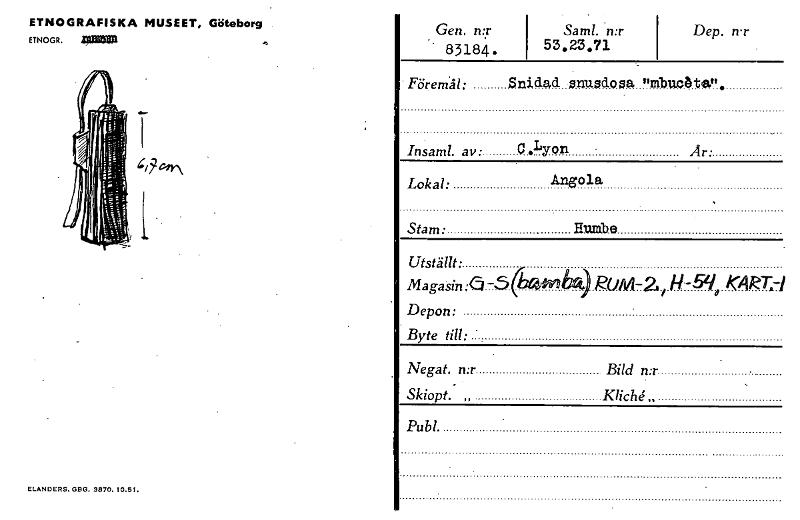 ETNOGRAFISKA MUSEET, Göteborg
ETNOGR.
6,7cm
ELANDERS. GBG. 3870. 10.51.
Gen. n:r Saml. n:r Dep. n:r
83184. 53.23.71
Föremål: Snidad snusdosa "mbucèta".
Insaml. av: C.Lyon År:
Lokal: Angola
Stam: Humbe
Utställt:
Magasin: G-S (bamba) RUM-2, H-54, KART.-1
Depon:
Byte till:
Negat. n:r Bild n:r
Skiopt. „ Kliché „
Publ.